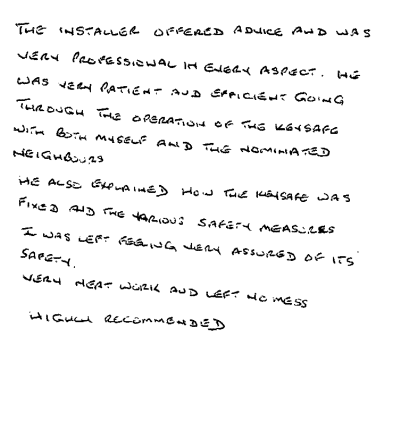 THE INSTALLER OFFERED ADVICE AND WAS
VERY PROFESSIONAL IN EVERY ASPECT. HE
WAS VERY PATIENT AND EFFICIENT GOING
THROUGH THE OPERATION OF THE KEYSAFE
WITH BOTH MYSELF AND THE NOMINATED
NEIGHBOURS
HE ALSO EXPLAINED HOW THE KEYSAFE WAS
FIXED AND THE VARIOUS SAFETY MEASURES
I WAS LEFT FEELING VERY ASSURED OF ITS
SAFETY.
VERY NEAT WORK AND LEFT NO MESS
HIGHLY RECOMMENDED